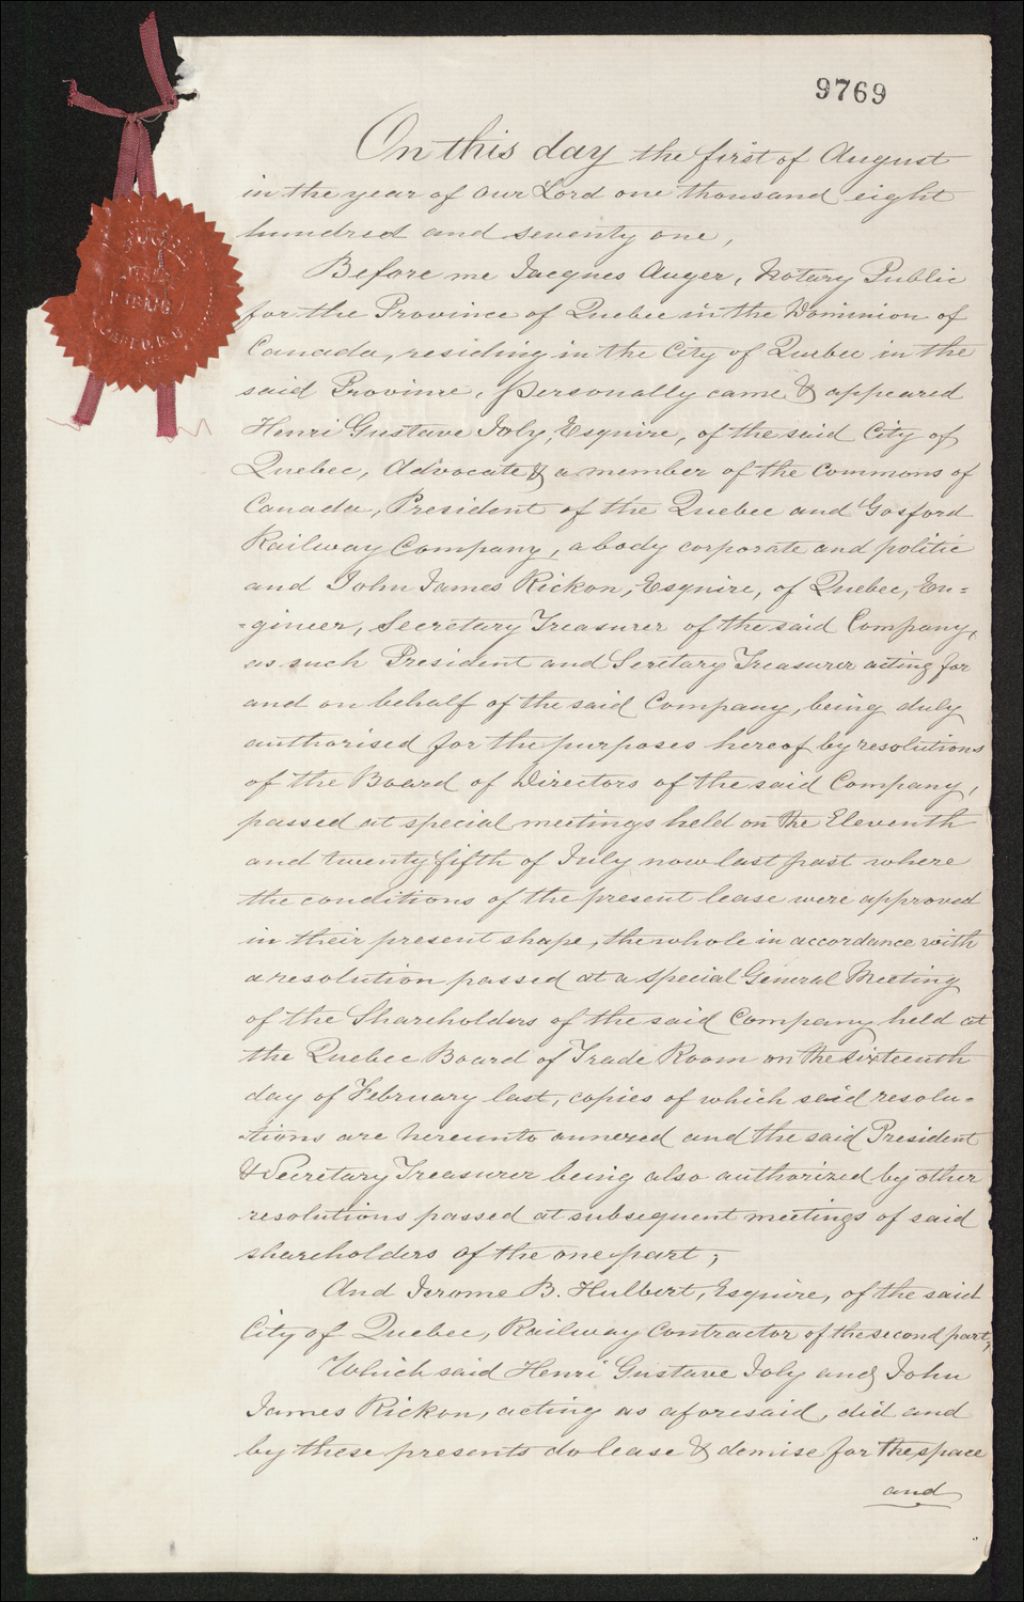 9769
On this day the first of August
in the year of our Lord one thousand eight
hundred and seventy one,
Before me Jacques Auger, Notary Public
for the Province of Quebec in the Dominion of
Canada, residing in the City of Quebec in the
said Province, personally came & appeared
Henri Gustave Joly, Esquire, of the said City of
Quebec, Advocate & a member of the Commons of
Canada, President of the Quebec and Gosford
Railway Company, a body corporate and politic
and John James Rickon, Esquire, of Quebec, En=
=gineer, Secretary Treasurer of the said Company,
as such President and Secretary Treasurer acting for
and on behalf of the said Company, being duly
authorised for the purposes hereof by resolutions
of the Board of Directors of the said Company,
passed at special meetings held on the Eleventh
and twenty fifth of July now last past where
the conditions of the present lease were approved
in their present shape, the whole in accordance with
a resolution passed at a special General Meeting
of the Shareholders of the said Company held at
the Quebec Board of Trade Room on the sixteenth
day of February last, copies of which said resolu-
-tions are hereunto annexed and the said President
& Secretary Treasurer being also authorized by other
resolutions passed at subsequent meetings of said
shareholders of the one part;
And Jerome B. Hulbert, Esquire, of the said
City of Quebec, Railway Contractor of the second part,
Which said Henri Gustave Joly and John
James Rickon, acting as aforesaid, did and
by these presents do lease & demise for the space
and